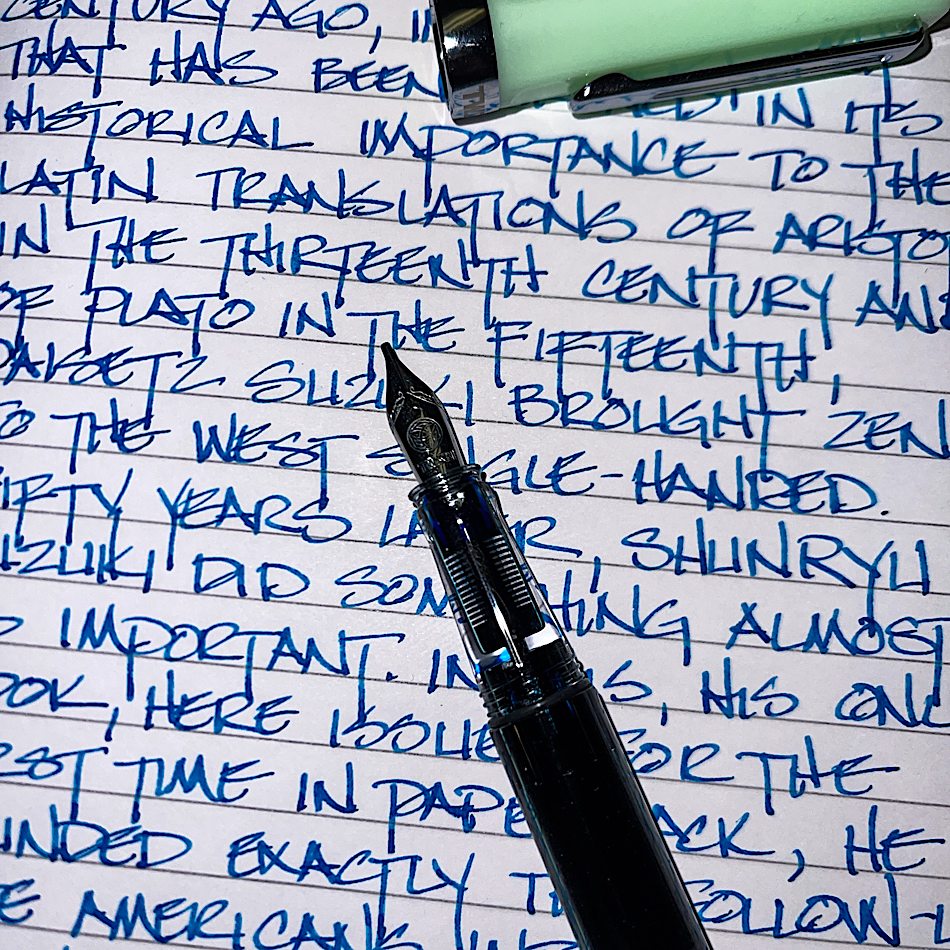 CENTURY AGO, IN
THAT HAS BEEN IN ITS
HISTORICAL IMPORTANCE TO THE
LATIN TRANSLATIONS OF ARISTO
IN THE THIRTEENTH CENTURY AND
OF PLATO IN THE FIFTEENTH,
DAISETZ SUZUKI BROUGHT ZEN
TO THE WEST SINGLE-HANDED.
FIFTY YEARS LATER, SHUNRYU
SUZUKI DID SOMETHING ALMOST
IMPORTANT. IN THIS, HIS ONLY
BOOK, HERE ISSUED FOR THE
FIRST TIME IN PAPERBACK, HE
SOUNDED EXACTLY THE FOLLOW-
AMERICANS